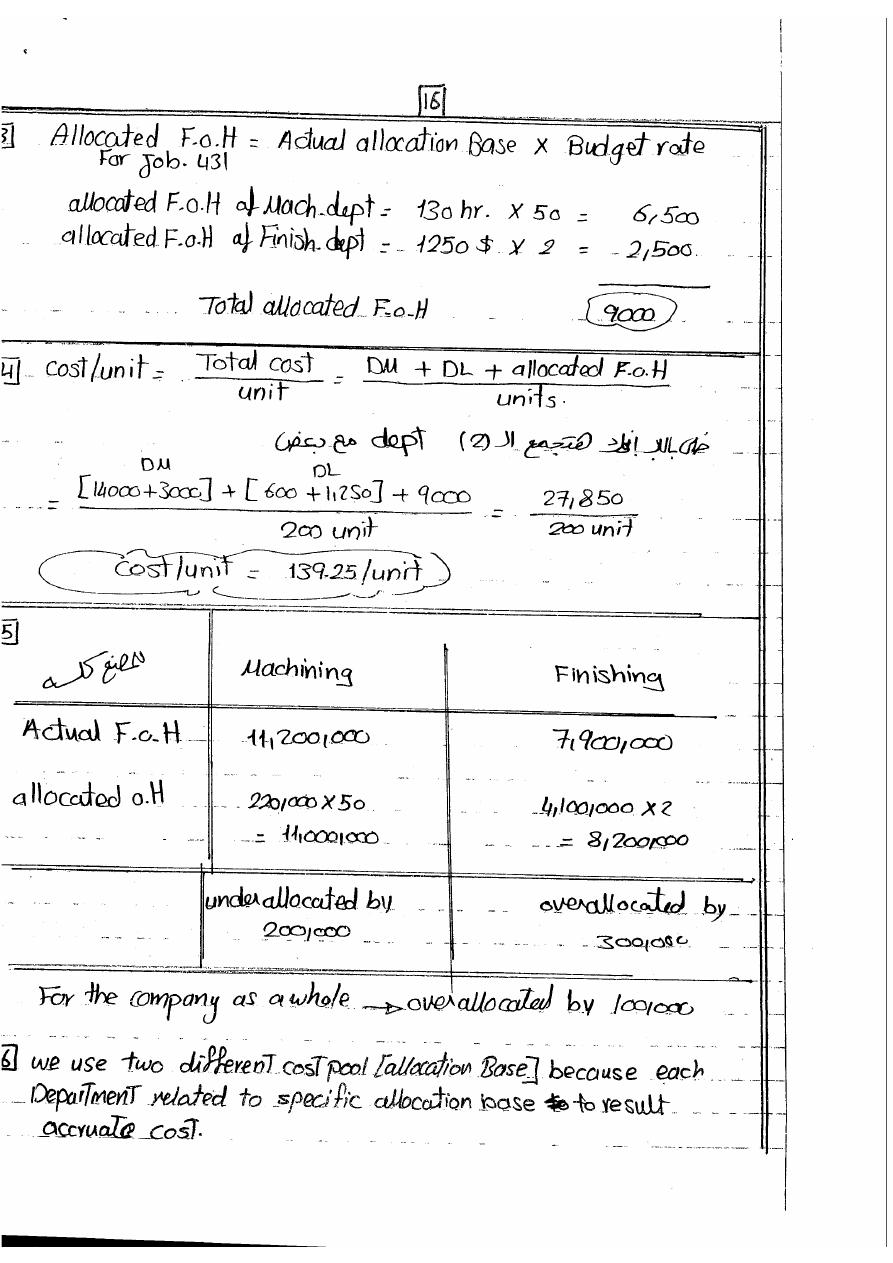 16
3] Allocated F.o.H = Actual allocation Base X Budget rate
For Job. 431
allocated F.o.H of Mach.dept = 130 hr. X 50 = 6,500
allocated F.o.H of Finish.dept = 1250 $ X 2 = 2,500
Total allocated F.o.H 9000
4] Cost/unit = Total cost / unit = DM + DL + allocated F.o.H / units.
خلى بالك هتجمع الـ (2) dept مع بعض
DM DL
= [14000+3000] + [600 + 1,250] + 9000 / 200 unit = 27,850 / 200 unit
Cost/unit = 139.25/unit
5]
Machining Finishing
Actual F.o.H 11,200,000 7,900,000
allocated o.H 220,000 X 50 4,100,000 X 2
= 11,000,000 = 8,200,000
underallocated by overallocated by
200,000 300,000
For the company as a whole → overallocated by 100,000
6] we use two different cost pool [allocation Base] because each
Department related to specific allocation base to result
accruate cost.